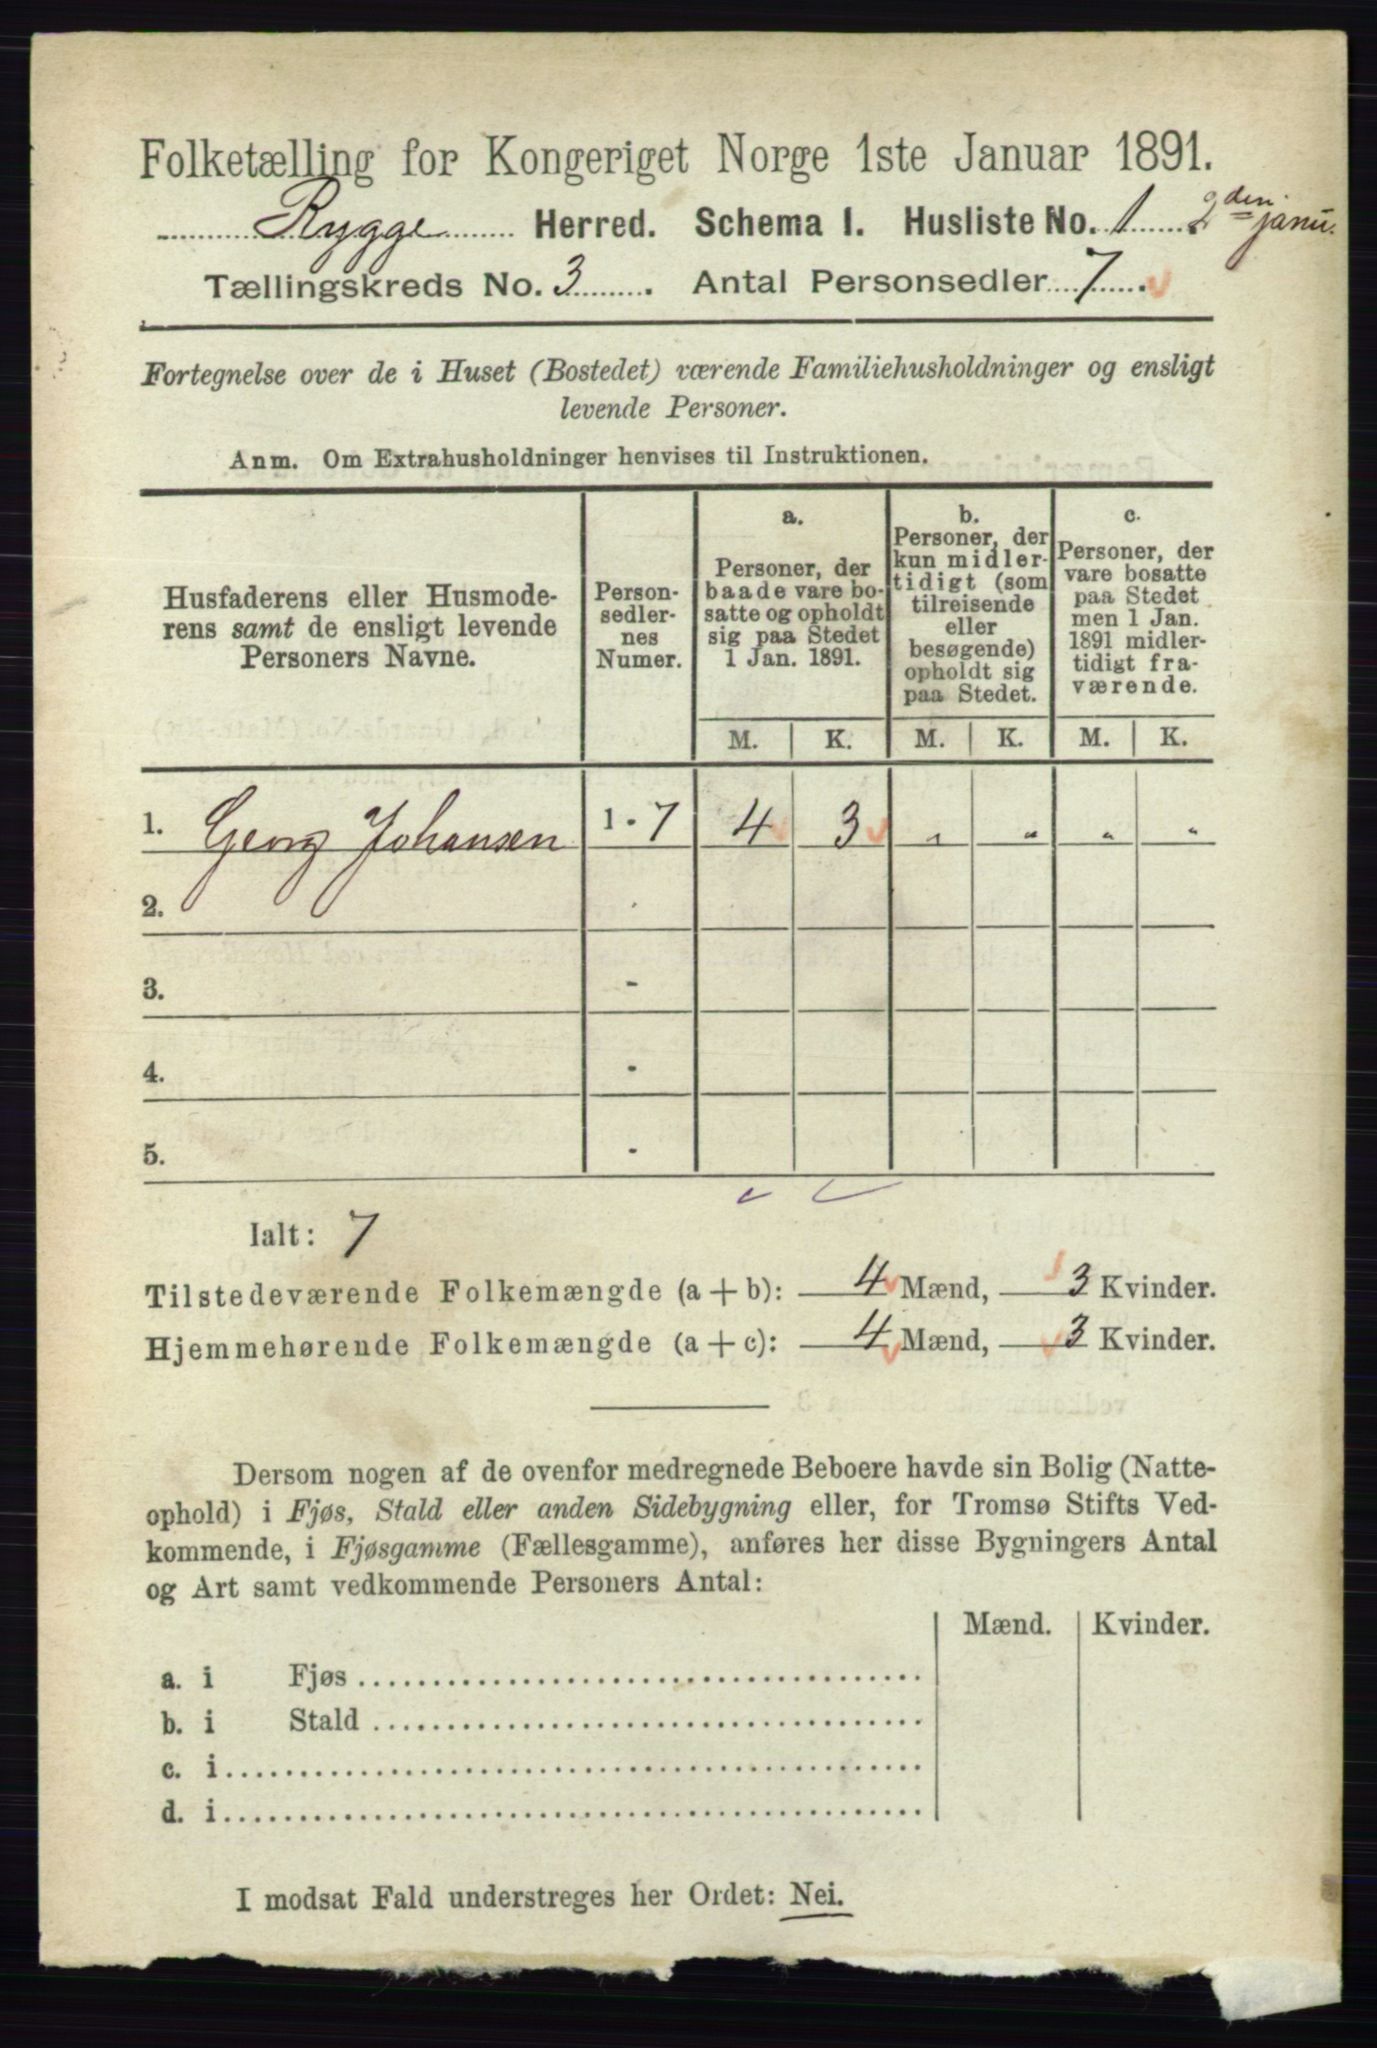 Folketælling for Kongeriget Norge 1ste Januar 1891.
Rygge Herred. Schema I. Husliste No. 1 2den janu.
Tællingskreds No. 3. Antal Personsedler 7.
Fortegnelse over de i Huset (Bostedet) værende Familiehusholdninger og ensligt
levende Personer.
Anm. Om Extrahusholdninger henvises til Instruktionen.
Husfaderens eller Husmode-
rens samt de ensligt levende
Personers Navne.
Person-
sedler-
nes
Numer.
a.
Personer, der
baade vare bo-
satte og opholdt
sig paa Stedet
1 Jan. 1891.
b.
Personer, der
kun midler-
tidigt (som
tilreisende
eller
besøgende)
opholdt sig
paa Stedet.
c.
Personer, der
vare bosatte
paa Stedet
men 1 Jan.
1891 midler-
tidigt fra-
værende.
M. K. M. K. M. K.
1. Georg Johansen 1 - 7 4 3 " " " "
2. -
3. -
4. -
5. -
Ialt: 7
Tilstedeværende Folkemængde (a + b): 4 Mænd, 3 Kvinder.
Hjemmehørende Folkemængde (a + c): 4 Mænd, 3 Kvinder.
Dersom nogen af de ovenfor medregnede Beboere havde sin Bolig (Natte-
ophold) i Fjøs, Stald eller anden Sidebygning eller, for Tromsø Stifts Ved-
kommende, i Fjøsgamme (Fællesgamme), anføres her disse Bygningers Antal
og Art samt vedkommende Personers Antal:
Mænd. Kvinder.
a. i Fjøs
b. i Stald
c. i
d. i
I modsat Fald understreges her Ordet: Nei.